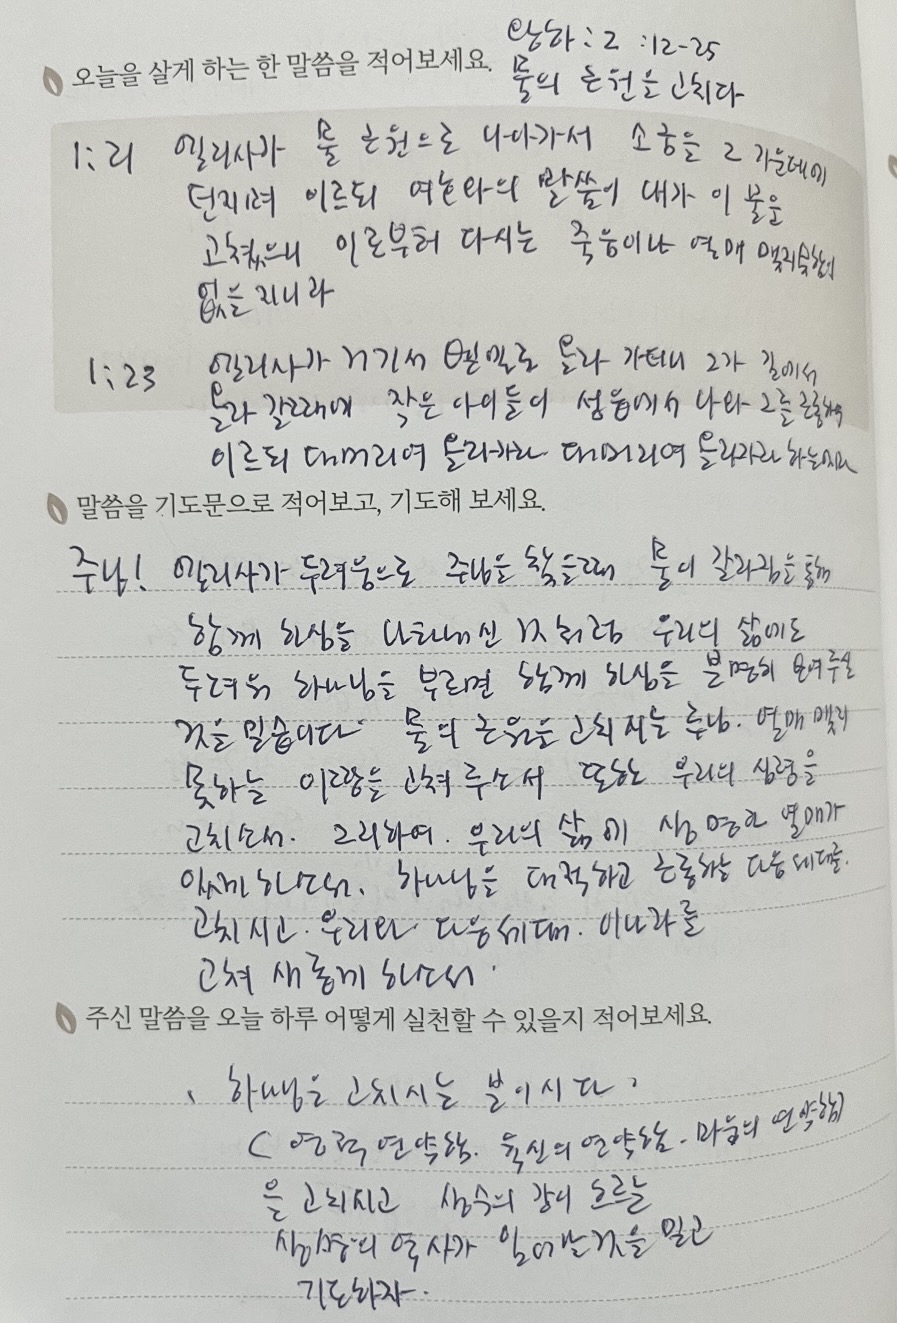 왕하 : 2 : 12-25
오늘을 살게 하는 한 말씀을 적어보세요.
물의 근원을 고치다
1:21 엘리사가 물 근원으로 나아가서 소금을 그 가운데에
던지며 이르되 여호와의 말씀이 내가 이 물을
고쳤으니 이로부터 다시는 죽음이나 열매 맺지 못함이
없을지니라
1:23 엘리사가 거기서 벧엘로 올라 가더니 그가 길에서
올라갈 때에 작은 아이들이 성읍에서 나와 그를 조롱하여
이르되 대머리여 올라가라 대머리여 올라가라 하는지라
말씀을 기도문으로 적어보고, 기도해 보세요.
주님! 엘리사가 두려움으로 주님을 찾을때 물이 갈라짐을 통해
함께 하심을 나타내신 것처럼 우리의 삶에도
두려워 하나님을 부르면 함께 하심을 분명히 보여주실
것을 믿습니다. 물의 근원을 고치시는 주님. 열매 맺지
못하는 이 땅을 고쳐 주소서 또한 우리의 심령을
고치소서. 그리하여. 우리의 삶에 생명과 열매가
있게 하소서. 하나님을 대적하고 조롱하는 다음세대를.
고치시고. 우리와 다음세대. 이 나라를
고쳐 새롭게 하소서.
주신 말씀을 오늘 하루 어떻게 실천할 수 있을지 적어보세요.
하나님은 고치시는 분이시다.
( 영적 연약함. 육신의 연약함. 마음의 연약함)
을 고치시고 생수의 강이 흐르는
생명의 역사가 일어날것을 믿고
기도하자.